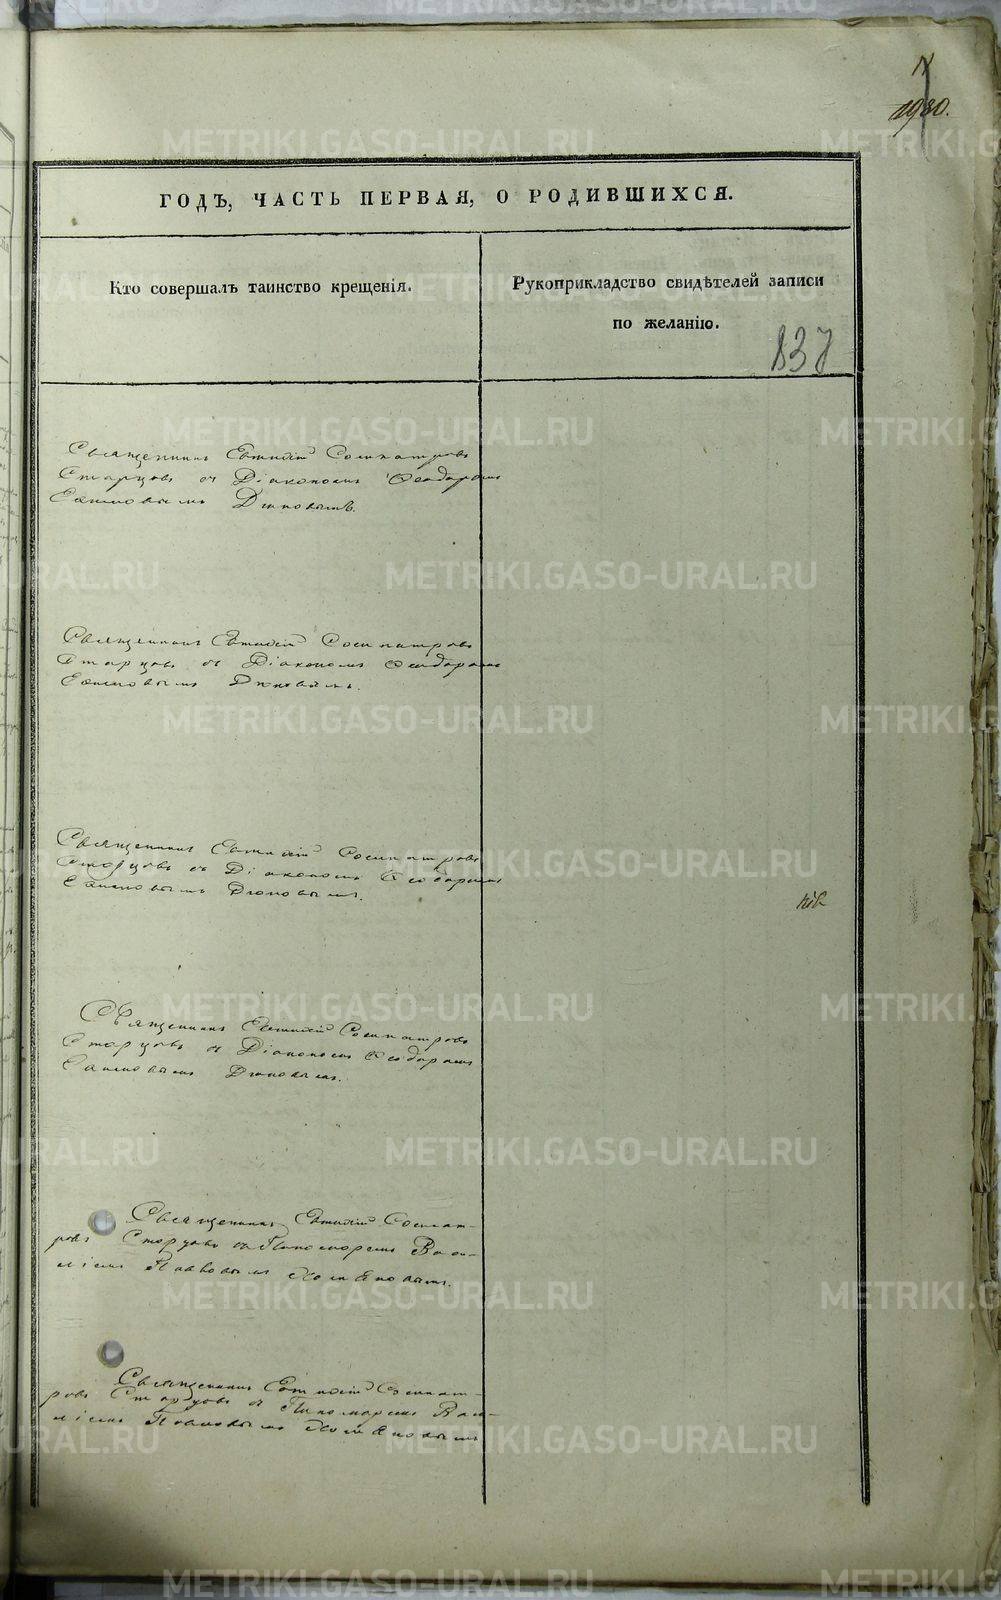 1980.
ГОДЪ, ЧАСТЬ ПЕРВАЯ, О РОДИВШИХСЯ.
Кто совершалъ таинство крещенія.
Рукоприкладство свидѣтелей записи
по желанію.
837
Священникъ Евтихій Сосипатровъ
Старцовъ съ Діакономъ Ѳеодоромъ
Екимовымъ
Священникъ Евтихій Сосипатровъ
Старцовъ съ Діакономъ Ѳеодоромъ
Екимовымъ
Священникъ Евтихій Сосипатровъ
Старцовъ съ Діакономъ Ѳеодоромъ
Екимовымъ
Священникъ Евтихій Сосипатровъ
Старцовъ съ Діакономъ Ѳеодоромъ
Екимовымъ
Священникъ Евтихій Сосипат-
ровъ Старцовъ съ Пономаремъ Васи-
ліемъ Павловымъ
Священникъ Евтихій Сосипат-
ровъ Старцовъ съ Пономаремъ Васи-
ліемъ Павловымъ
METRIKI.GASO-URAL.RU